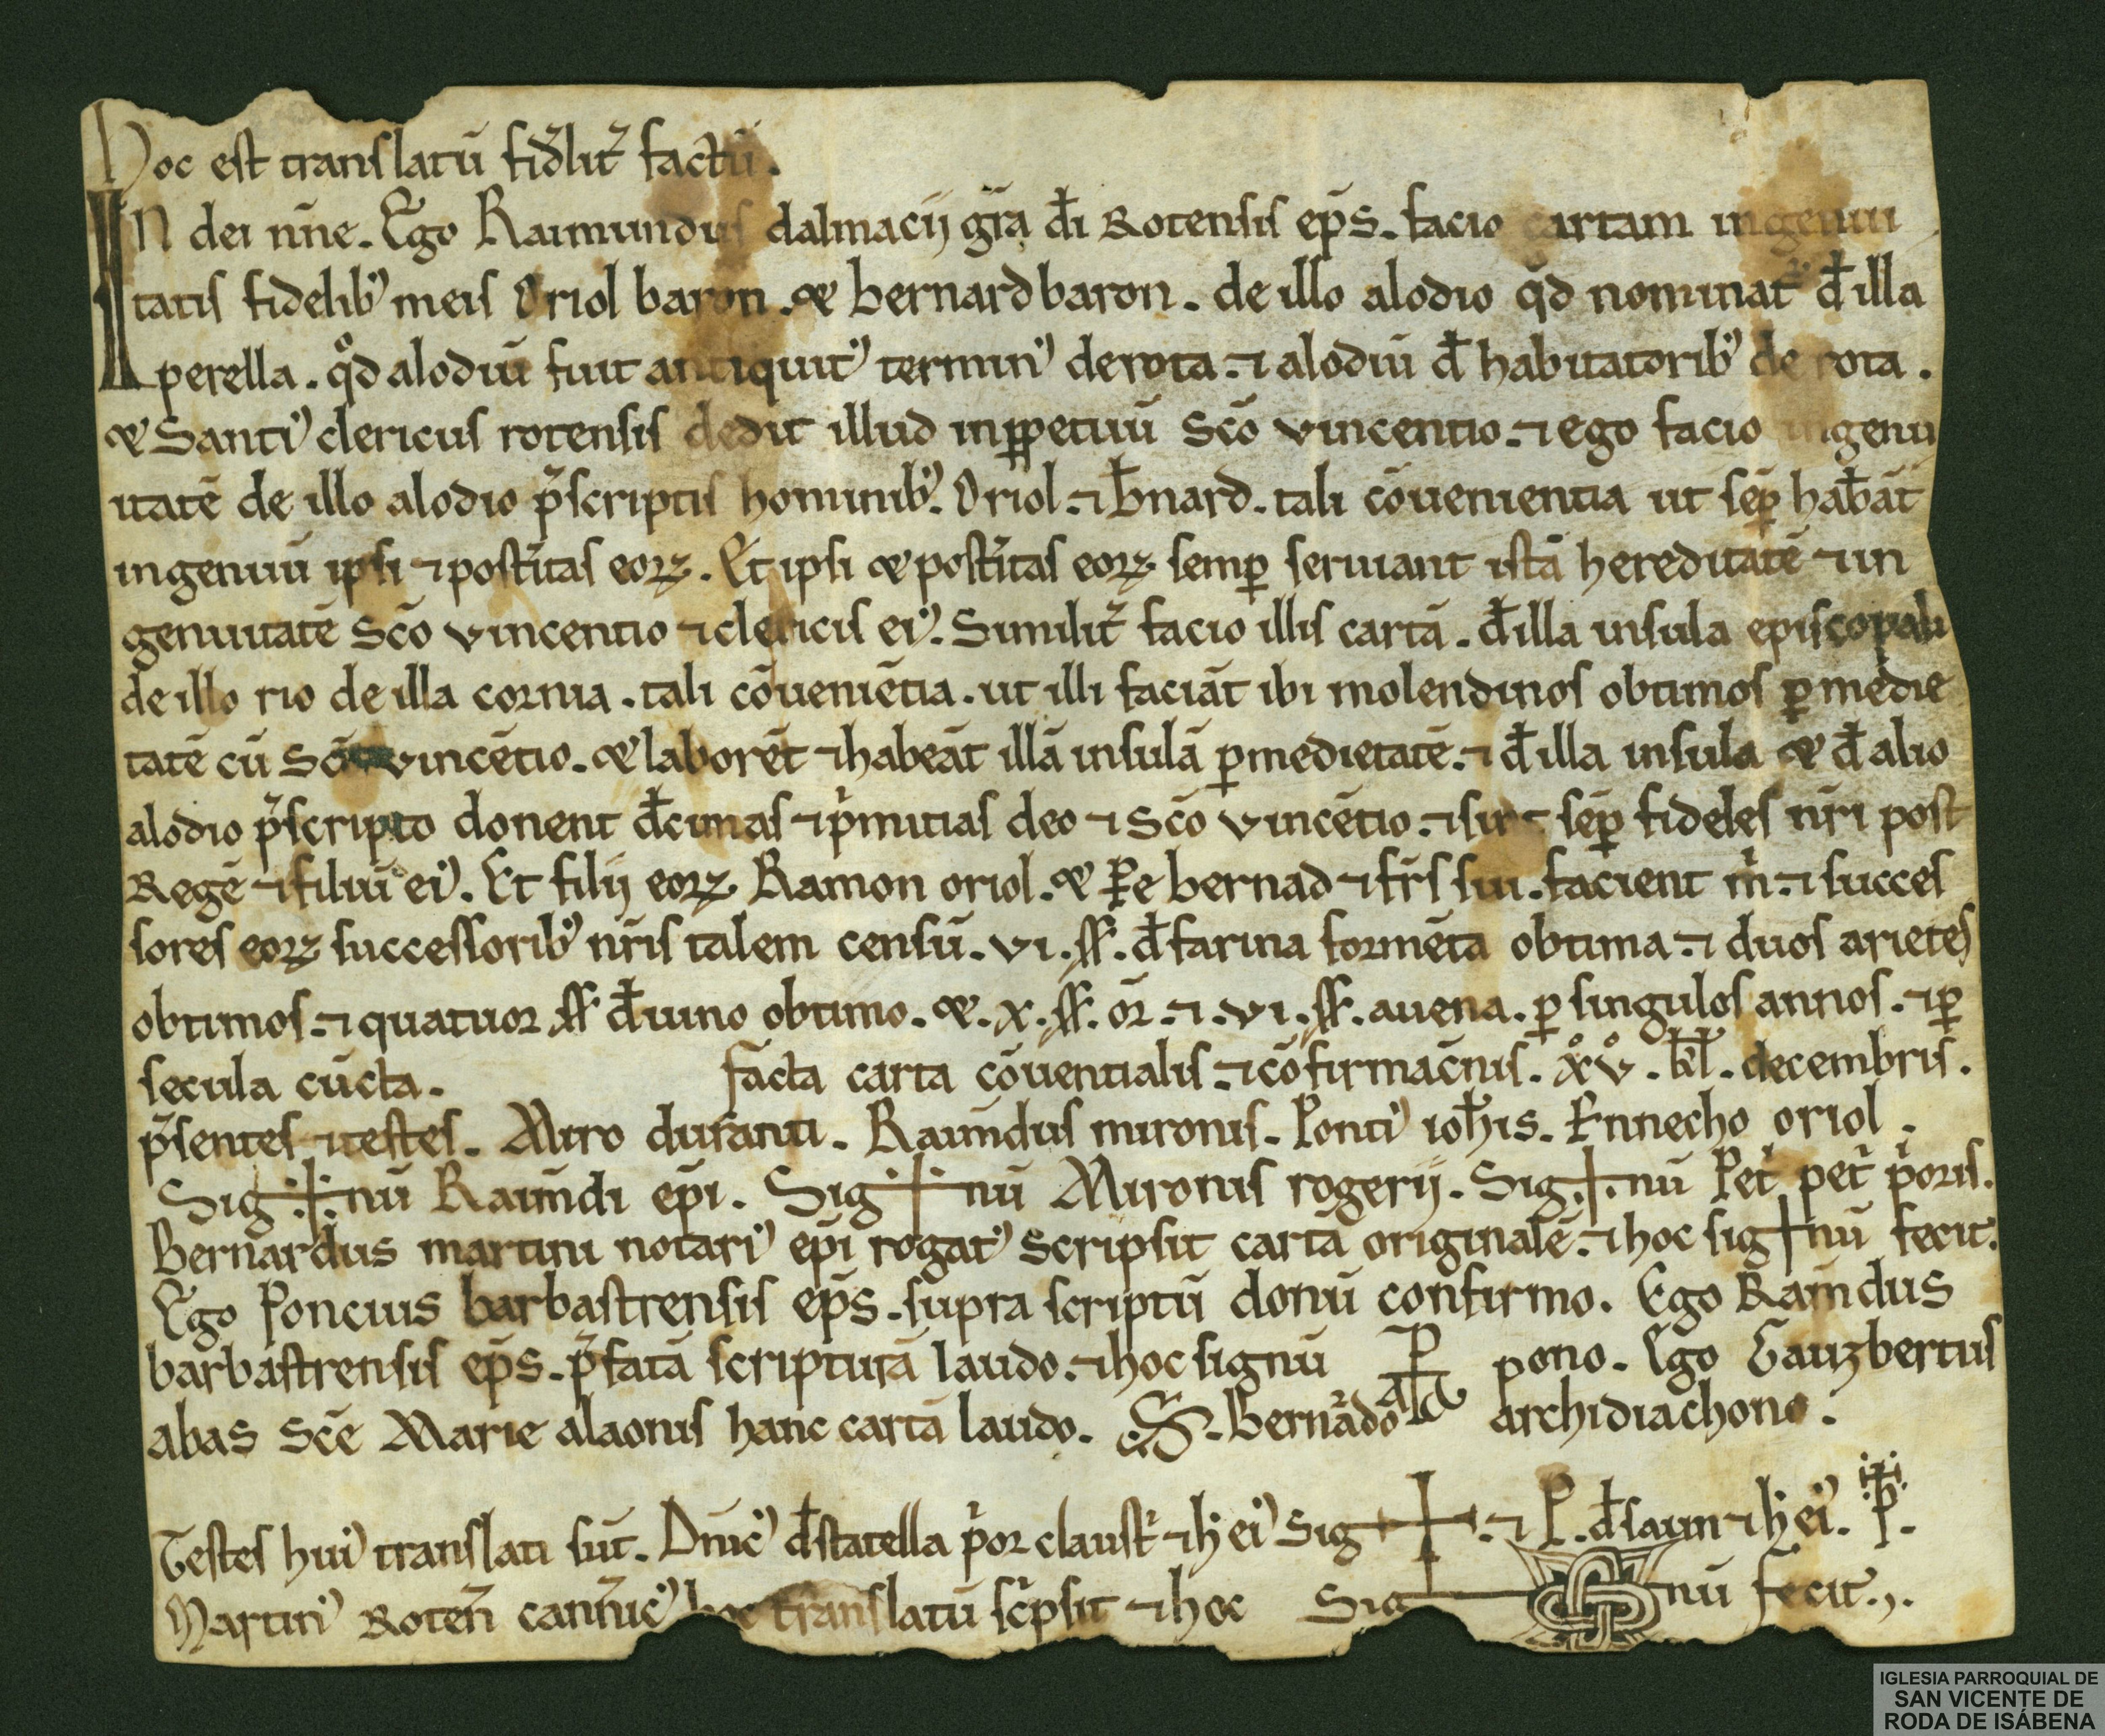 Hoc est translatū fidͣlit̾ factū.
IN dei nn̄e. Ego Raimundus dalmacij gr̄a dī Rotensis ep̄s. facio cartam ingenui
tatis fidelibꝰ meis Oriol baron. & bernard baron. de illo alodio qd̄ nominat̾ đ illa
perella. qͦd alodiū fuit antiquitꝰ terminꝰ de rota. ⁊ alodiū đ habitatoribꝰ de rota.
& Santiꝰ clericus rotensis dedit illud inꝑpetuū Scō vincentio. ⁊ ego facio ingenu
itatē de illo alodio p̄scriptis hominibꝰ. Oriol. ⁊ b̄nard. tali cōuenientia ut sēꝑ hab̄āt
ingenuū ipsi ⁊ post̾itas eoꝝ. Et ipsi & post̾itas eoꝝ semꝑ seruiant istā hereditatē ⁊ in
genuitatē Scō vincentio ⁊ clericis eiꝰ. Similit̾ facio illis cartā. đ illa insula episcopali
de illo rio de illa cornia. tali cōueniētia. ut illi faciāt ibi molendinos obtimos ꝑ medie
tatē cū Scō vincētio. & laborēt ⁊ habeāt illā insulā ꝑ medietatē. ⁊ đ illa insula & đ alio
alodio p̄scripto donent đcimas ⁊ pͥmitias deo ⁊ Scō vincētio. ⁊ sint sēꝑ fideles nr̄i post
Regē ⁊ filiū eiꝰ. Et filij eoꝝ Ramon oriol. & Pe bernad ⁊ fr̄s sui. facient mͥ. ⁊ succes
sores eoꝝ successoribꝰ nr̄is talem censū. vi. ſſ. đ farina formēta obtima. ⁊ duos arietes
obtimos. ⁊ quatuor ſſ đ uino obtimo. &. x. ſſ. or̄. ⁊. vi. ſſ. auena. ꝑ singulos annos. ⁊ ꝑ
secula cūcta. facta carta cōuentialis. ⁊ cōfirmac̄nis. xͦvͦ. kł. decembris.
p̄sentes ⁊ testes. Miro duranti. Raim̄dus mironis. Pontiꝰ ioh̄is. Ennecho oriol.
Sig+nū Raim̄di ep̄i. Sig+nū Mironis rogerij. Sig+nū Pet̾ pet̾ pͥoris.
Bernardus martini notariꝰ ep̄i rogatꝰ scripsit cartā originalē. ⁊ hoc sig+nū fecit.
Ego Poncius barbastrensis ep̄s. supra scriptū donū confirmo. Ego Raim̄dus
barbastrensis ep̄s. p̄fatā scripturā laudo. ⁊ hoc signū pono. Ego Gauzbertus
abas Scē Marie alaonis hanc cartā laudo. S. Bernardo archidiachono.
Testes huiꝰ translati sūt. Dn̄icꝰ đ statella pͥor claust̾ ⁊ h̄ eiꝰ Sig+. ⁊ P. đ saun ⁊ h̄ eiꝰ. P.
Martinꝰ Roten̄ cann̄icꝰ hoc translatū scͥpsit ⁊ hoc Sig nū fecit.
IGLESIA PARROQUIAL DE
SAN VICENTE DE
RODA DE ISÁBENA